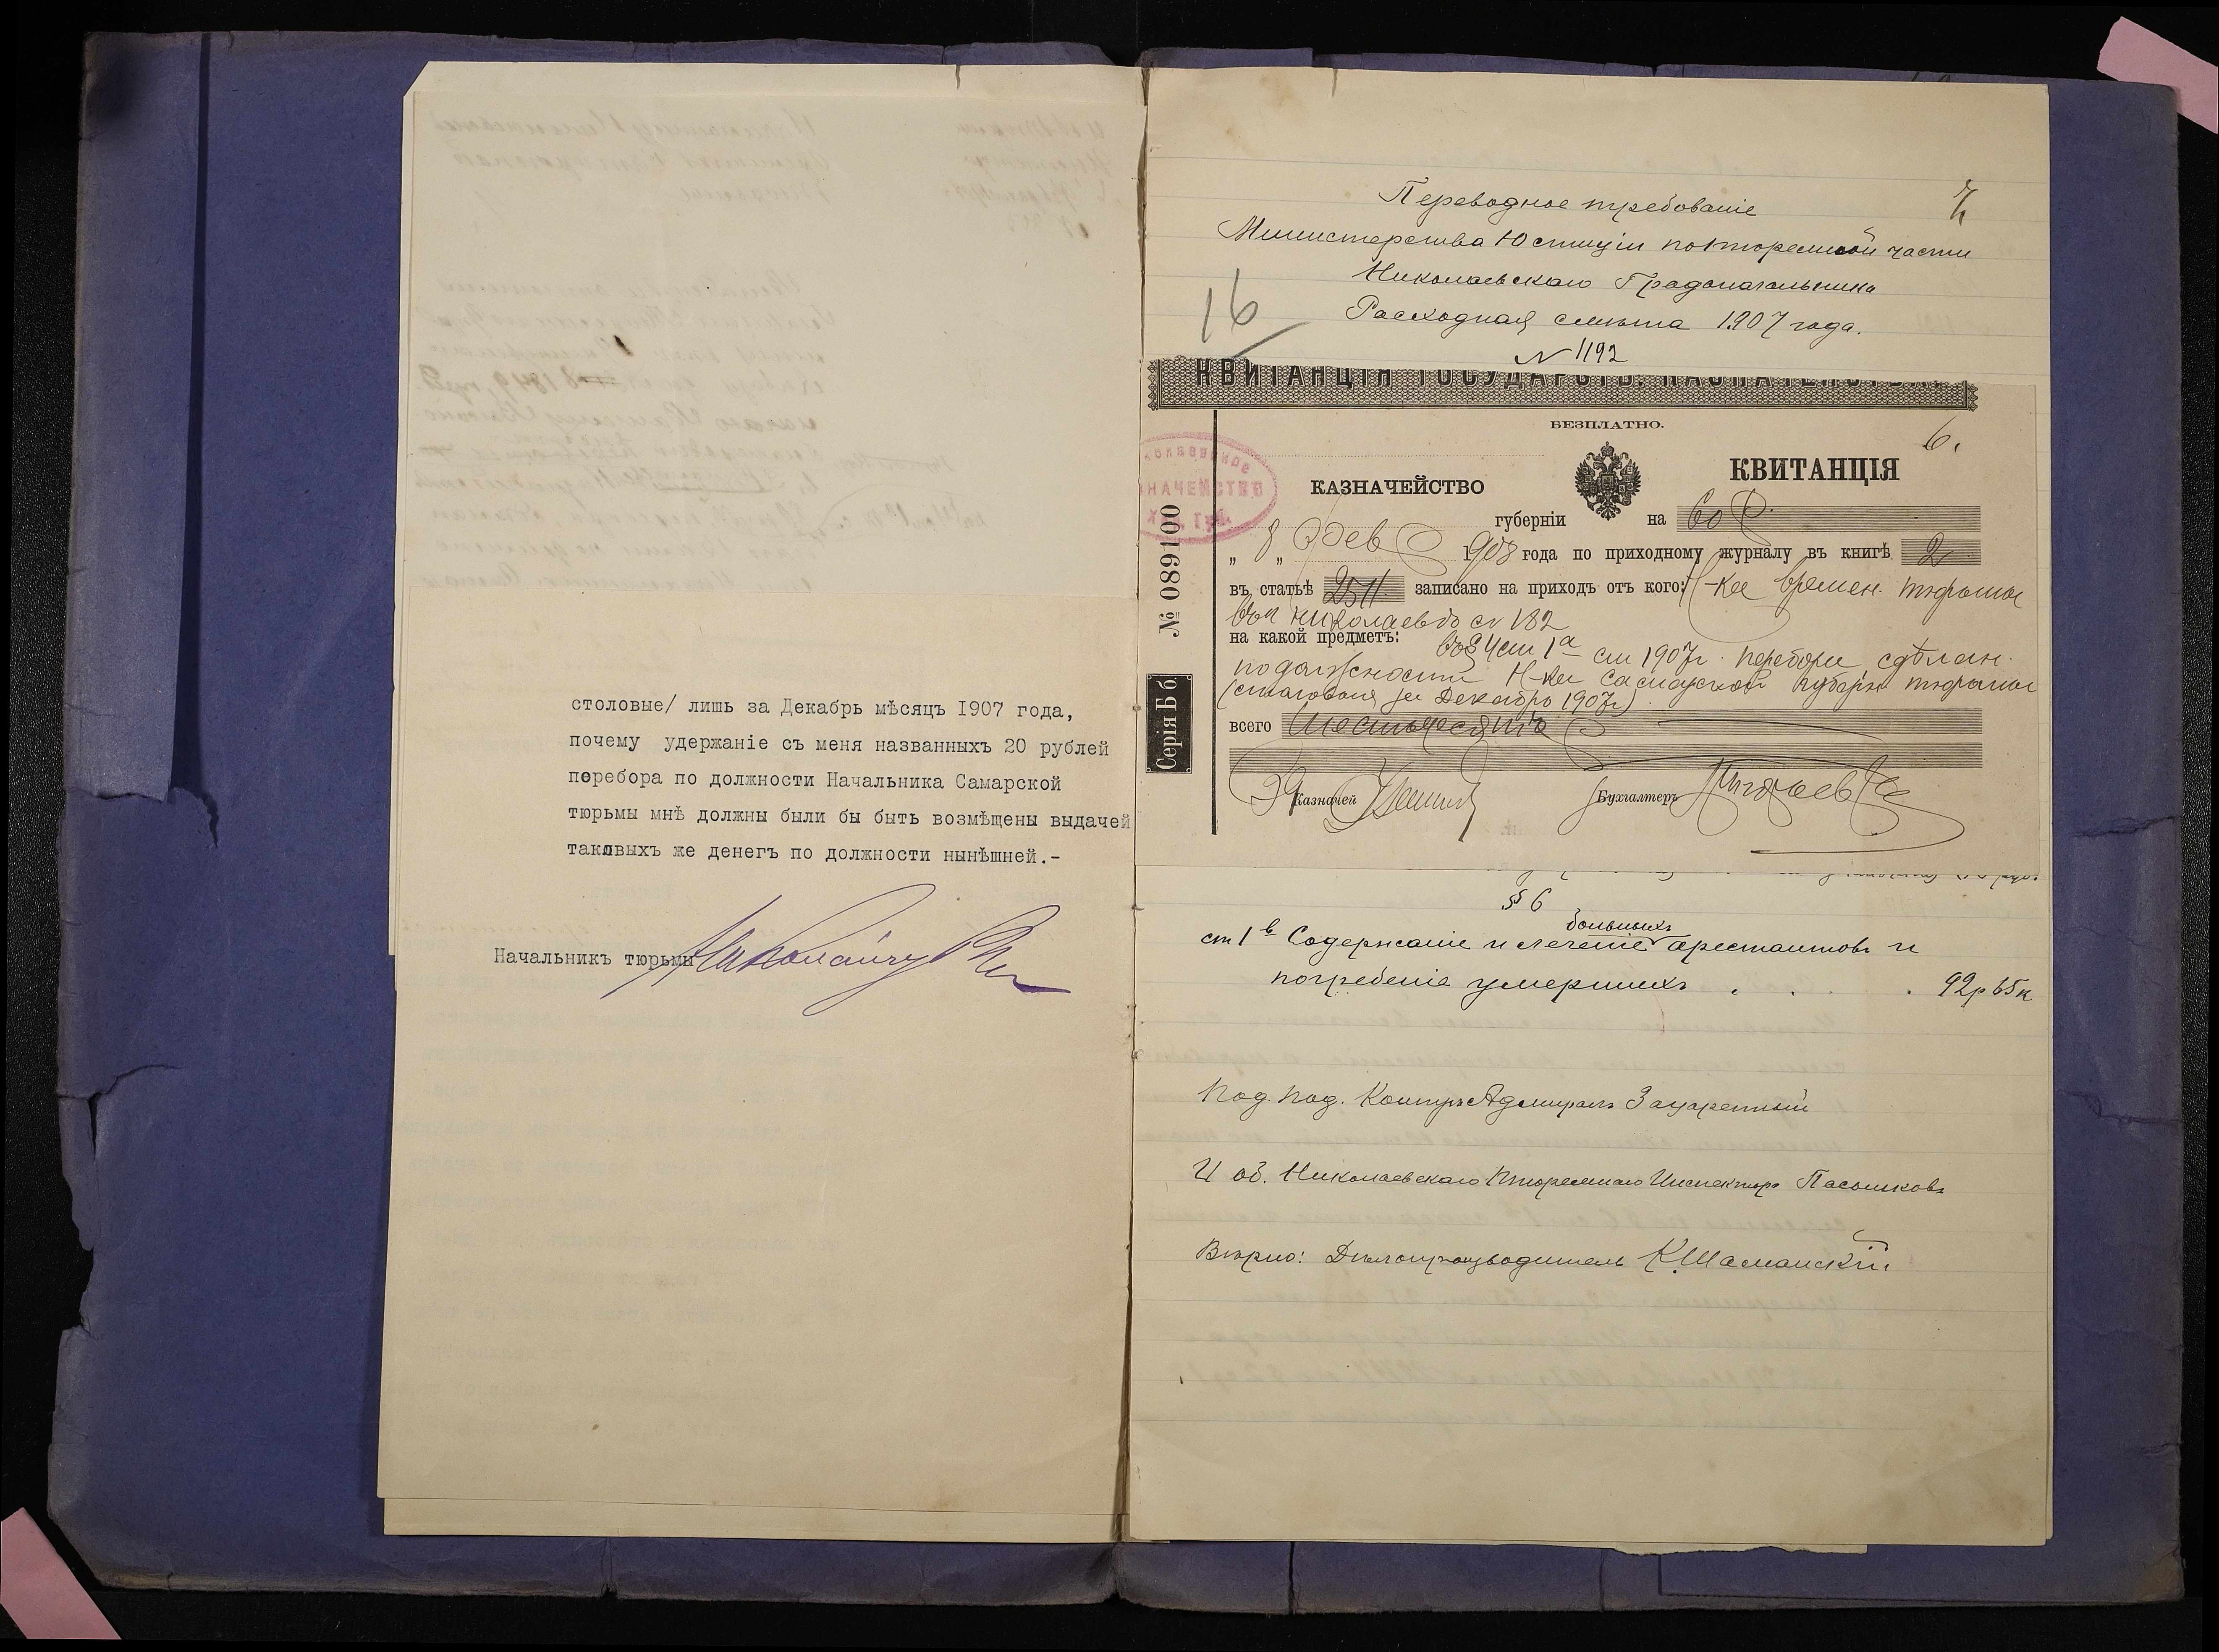 столовые/ лишь за Декабрь мѣсяцъ 1907 года,
почему удержаніе съ меня названныхъ 20 рублей
перебора по должности Начальника Самарской
тюрьмы мнѣ должны были бы быть возмѣщены выдачей
таковыхъ же денегъ по должности нынѣшней.-
Начальникъ тюрьмы
7
Переводное требованіе
Министерства Юстиціи по тюремной части
Николаевскаго Градоначальника
16
Расходная смѣта 1907 года.
N 1192
КВИТАНЦІЯ ГОСУДАРСТВ. КАЗНАЧЕЙСТВА.
БЕЗПЛАТНО.
6.
КАЗНАЧЕЙСТВО
КВИТАНЦІЯ
губерніи на 60 р.
„ 8 „ Фев 1908 года по приходному журналу въ книгѣ 2
въ статьѣ 2511 записано на приходъ отъ кого: Н-ка времен. тюрьмы
въ г Николаевѣ
на какой предметъ: 1907г. переборъ сдѣлан.
по должности Н-ка Самарской губерн. тюрьмы
(столовыя за Декабрь 1907г)
всего Шестьдесятъ
Казначей
Бухгалтеръ
№ 089100
Серія Б б
§ 6
больныхъ
ст 1 в Содержаніе и леченіе арестантовъ и
погребеніе умершихъ . . . 92р 65к
Под. под. Контръ Адмиралъ Зацаренный
И об. Николаевскаго Тюремнаго Инспектора Пасынковъ
Вѣрно: Дѣлопроизводитель К. Шаманскій